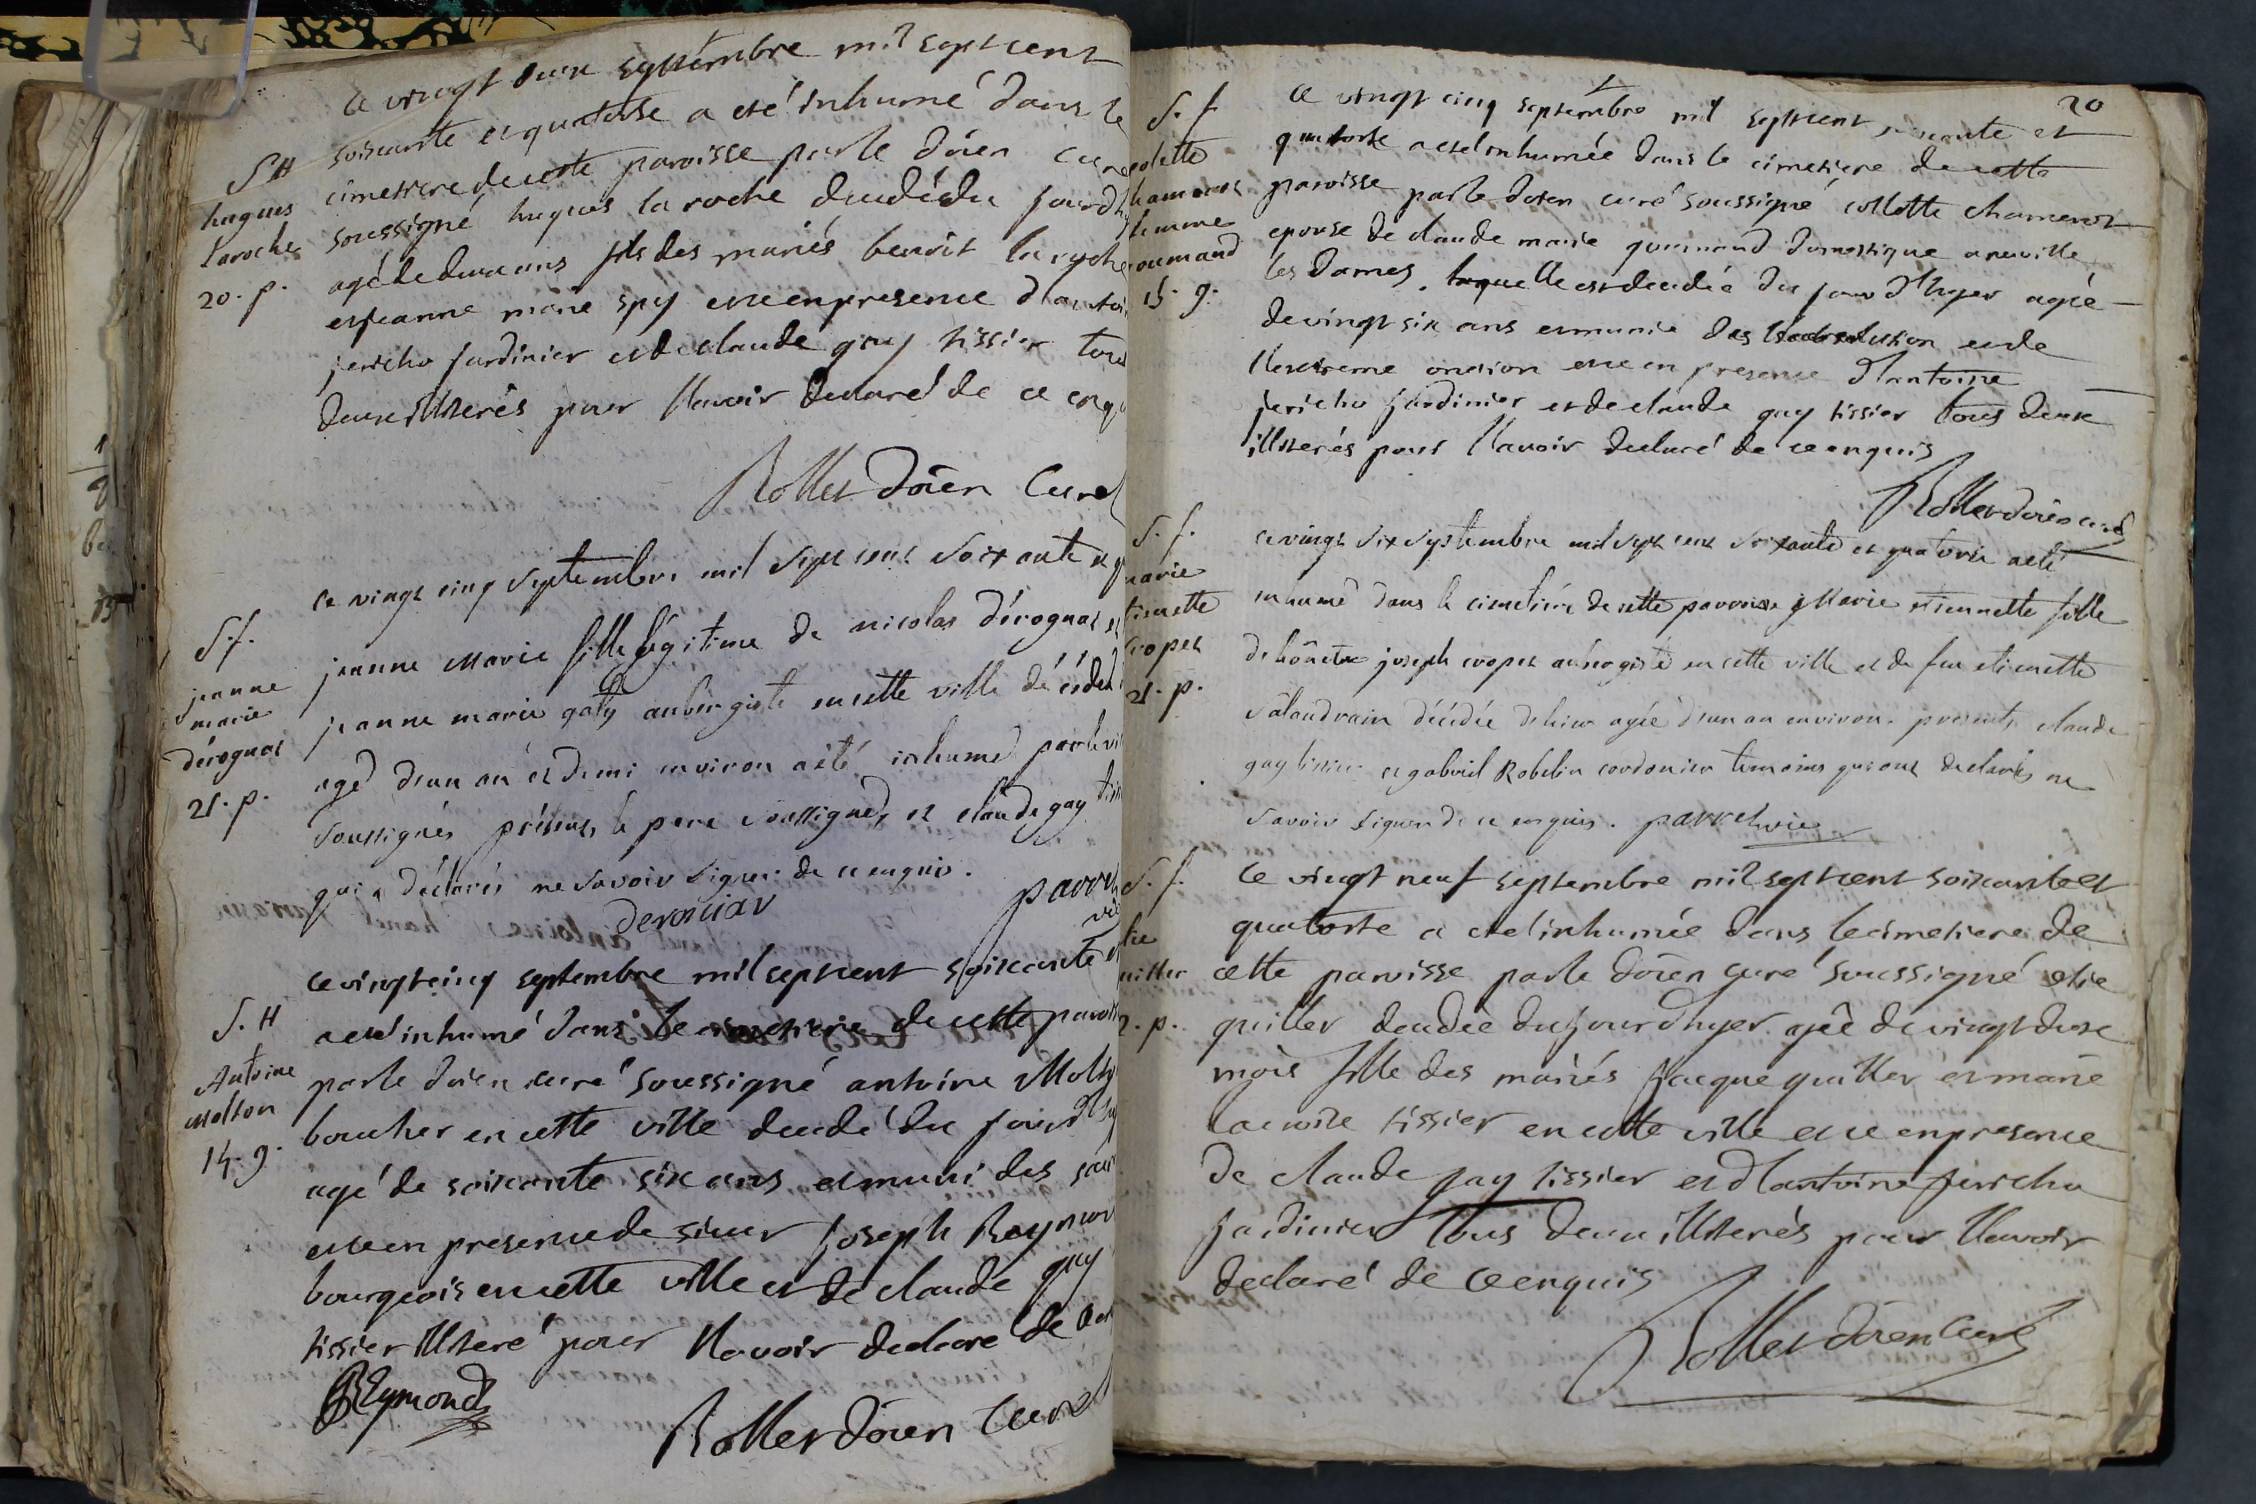 ce vingt deux septembre mil sept cent
soixante et quatorse a eté inhumé dans le
cimetiere de cette paroisse par le doïen curé
soussigné hugues la roche decedé du jour d'h
agé de deux ans fils des mariés benoit la roche
et jeanne marie spy et ce en presence d'antoi
jericho jardinier et de claude gay tissier tous
deux illiterés pour l'lavoir declaré de ce enqu
Rollet doïen Curé
S H
hugues
laroche
20. p.
ce vingt cinq septembre mil sept cent soixante et q
jeanne marie fille légitime de nicolas dérognat et
jeanne marie gaty aubergiste en cette ville décédé
agé d'un an et demi environ a été inhumé par le vi
soussignés présents le pere soussigné, et claude gay tiss
qui a déclaré ne savoir signer de ce enquis.
derognat parret
vic
S. f.
jeanne
marie
dérognat
21. p.
ce vingt cinq septembre mil sept cent soixante et
a eté inhumé dans le cimetiere de cette paroiss
par le doïen curé soussigné antoine Molto
boucher en cette ville decedé du jour d'hy
agé de soixante six ans et muni des sacr
et ce en presence de sieur joseph Reymon
bourgeois en cette ville et de claude gay
tissier illiteré pour l'lavoir declaré de ce en
REymond
Rollet doïen Curé
S. H
Antoine
Molton
14. g.
20
ce vingt cinq septembre mil sept cent soixante et
quatorse a eté inhumée dans le cimetiere de cette
paroisse par le doïen curé soussigné collette chamenot
epouse de claude marie gourmand domestique a neuville
les dames, laquelle est decedée du jour d'hyer agée
de vingt six ans et munie des l'absolution et de
l'extreme onction et ce en presence d'lantoine
jericho jardinier et de claude gay tissier tous deux
illiterés pour l'lavoir declaré de ce enquis
Rollet doïen curé
S. f
olette
hamenot
femme
ourmand
15. g.
ce vingt six septembre mil sept cent soixante et quatorse a été
inhumé dans le cimetière de cette paroisse Marie etiennette fille
de hônete joseph coopet aubergiste en cette ville et de feu etiennette
salandrain décédée d'hier agée d'un an environ. presents claude
gay tissier et gabriel Robelin cordonier temoins qui ont declarés ne
savoir signer de ce enquis. parret vic
S. f.
marie
tiennette
coopet
21. p.
ce vingt neuf septembre mil sept cent soixante et
quatorse a eté inhumée dans le cimetiere de
cette paroisse par le doïen curé soussigné elie
quiller decedée du jour d'hyer agée de vingt deux
mois fille des mariés jacque quiller et marie
lacroise tissier en cette ville et ce en presence
de claude gay tissier et d'lantoine jericho
jardinier tous deux illiterés pour l'lavoir
declaré de ce enquis
Rollet doïen Curé
S. f.
lie
uiller
2. p.